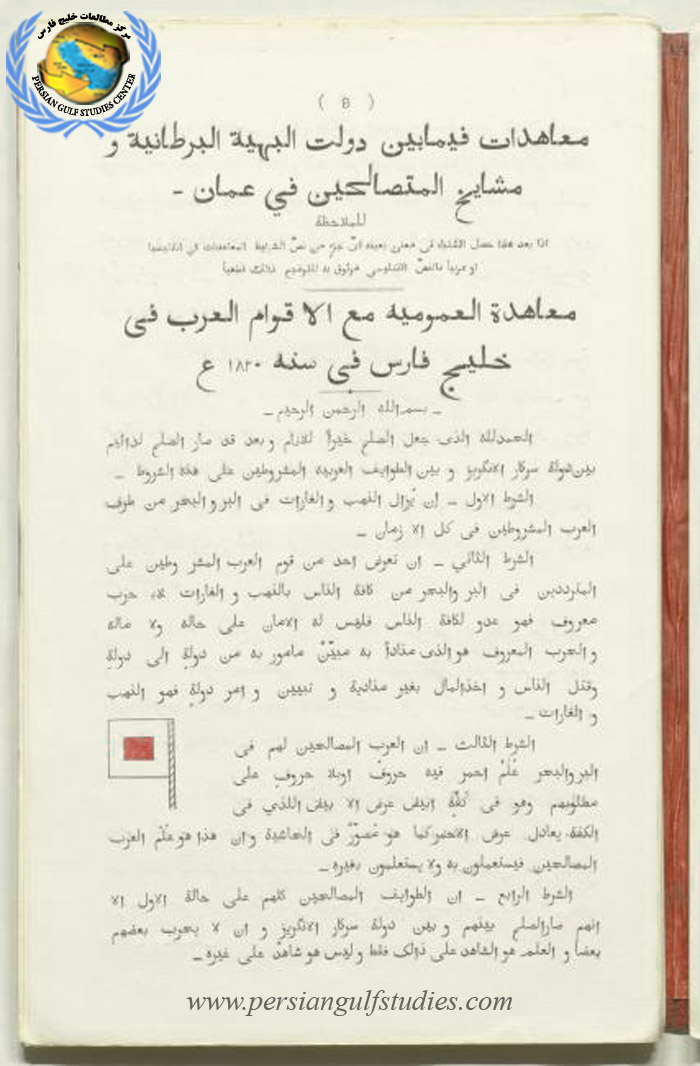 مرکز مطالعات خلیج فارس
PERSIAN GULF STUDIES CENTER
( ٥ )
معاهدات فیمابین دولت البهیة البرطانیة و
مشایخ المتصالحین في عمان -
للملاحظة
اذا بعد هذا حصل الاشتباه فی معنی بعینه ایّ جزء من نصّ الشرایط المعاهدات فی انکلیشها
او عربیاً فالنصّ الانکلیسي موثوق به للتوضیح ذلك قطعیاً
معاهدة العمومیه مع الا قوام العرب فی
خلیج فارس فی سنه ١٨٢٠ ع
ـ بسم الله الرحمن الرحیم ـ
الحمدلله الذی جعل الصلح خیراً للانام و بعد قد صار الصلح لدائیم
بین دولة سرکار الانگریز و بین الطوایف العربیه المشروطین علی هذه الشروط ـ
الشرط الاول ـ ان یُزال النهب و الغارات فی البر و البحر من طرف
العرب المشروطین فی کل الا زمان ـ
الشرط الثاني ـ ان تعرض احد من قوم العرب المشر وطین علی
المترددین فی البر والبحر من کافة الناس بالنهب و الغارات بلا حرب
معروف فهو عدو لکافة الناس فلیس له الامان علی حاله ولا ماله
و الحرب المعروف هو الذی مناداً به مبیّنٌ مامور به من دولةٍ الی دولةٍ
وقتل الناس و اخذ المال بغیر منادیة و تبیین و امر دولةٍ فهو النهب
و الغارات ـ
الشرط الثالث ـ ان العرب المصالحین لهم فی
البر والبحر عَلَمٌ احمر فیه حروفٌ اوبلا حروفٍ علی
مطلوبهم وهو فی کفّةٍ ابیض عرض الا بیض اللذي فی
الکفة یعادل عرض الاحمر کما هو مُصوّرٌ فی الحاشیة و ان هذا هو عَلَمُ العرب
المصالحین فیستعملون به ولا یستعملون بغیره ـ
الشرط الرابع ـ ان الطوایف المصالحین کلهم علی حالة الاول الا
انهم صار الصلح بینهم و بین دولة سرکار الانگریز و ان لا یحرب بعضهم
بعضاً و العلم هو الشاهد علی ذالک فقط و لیس هو شاهدٌ علی غیره ـ
www.persiangulfstudies.com